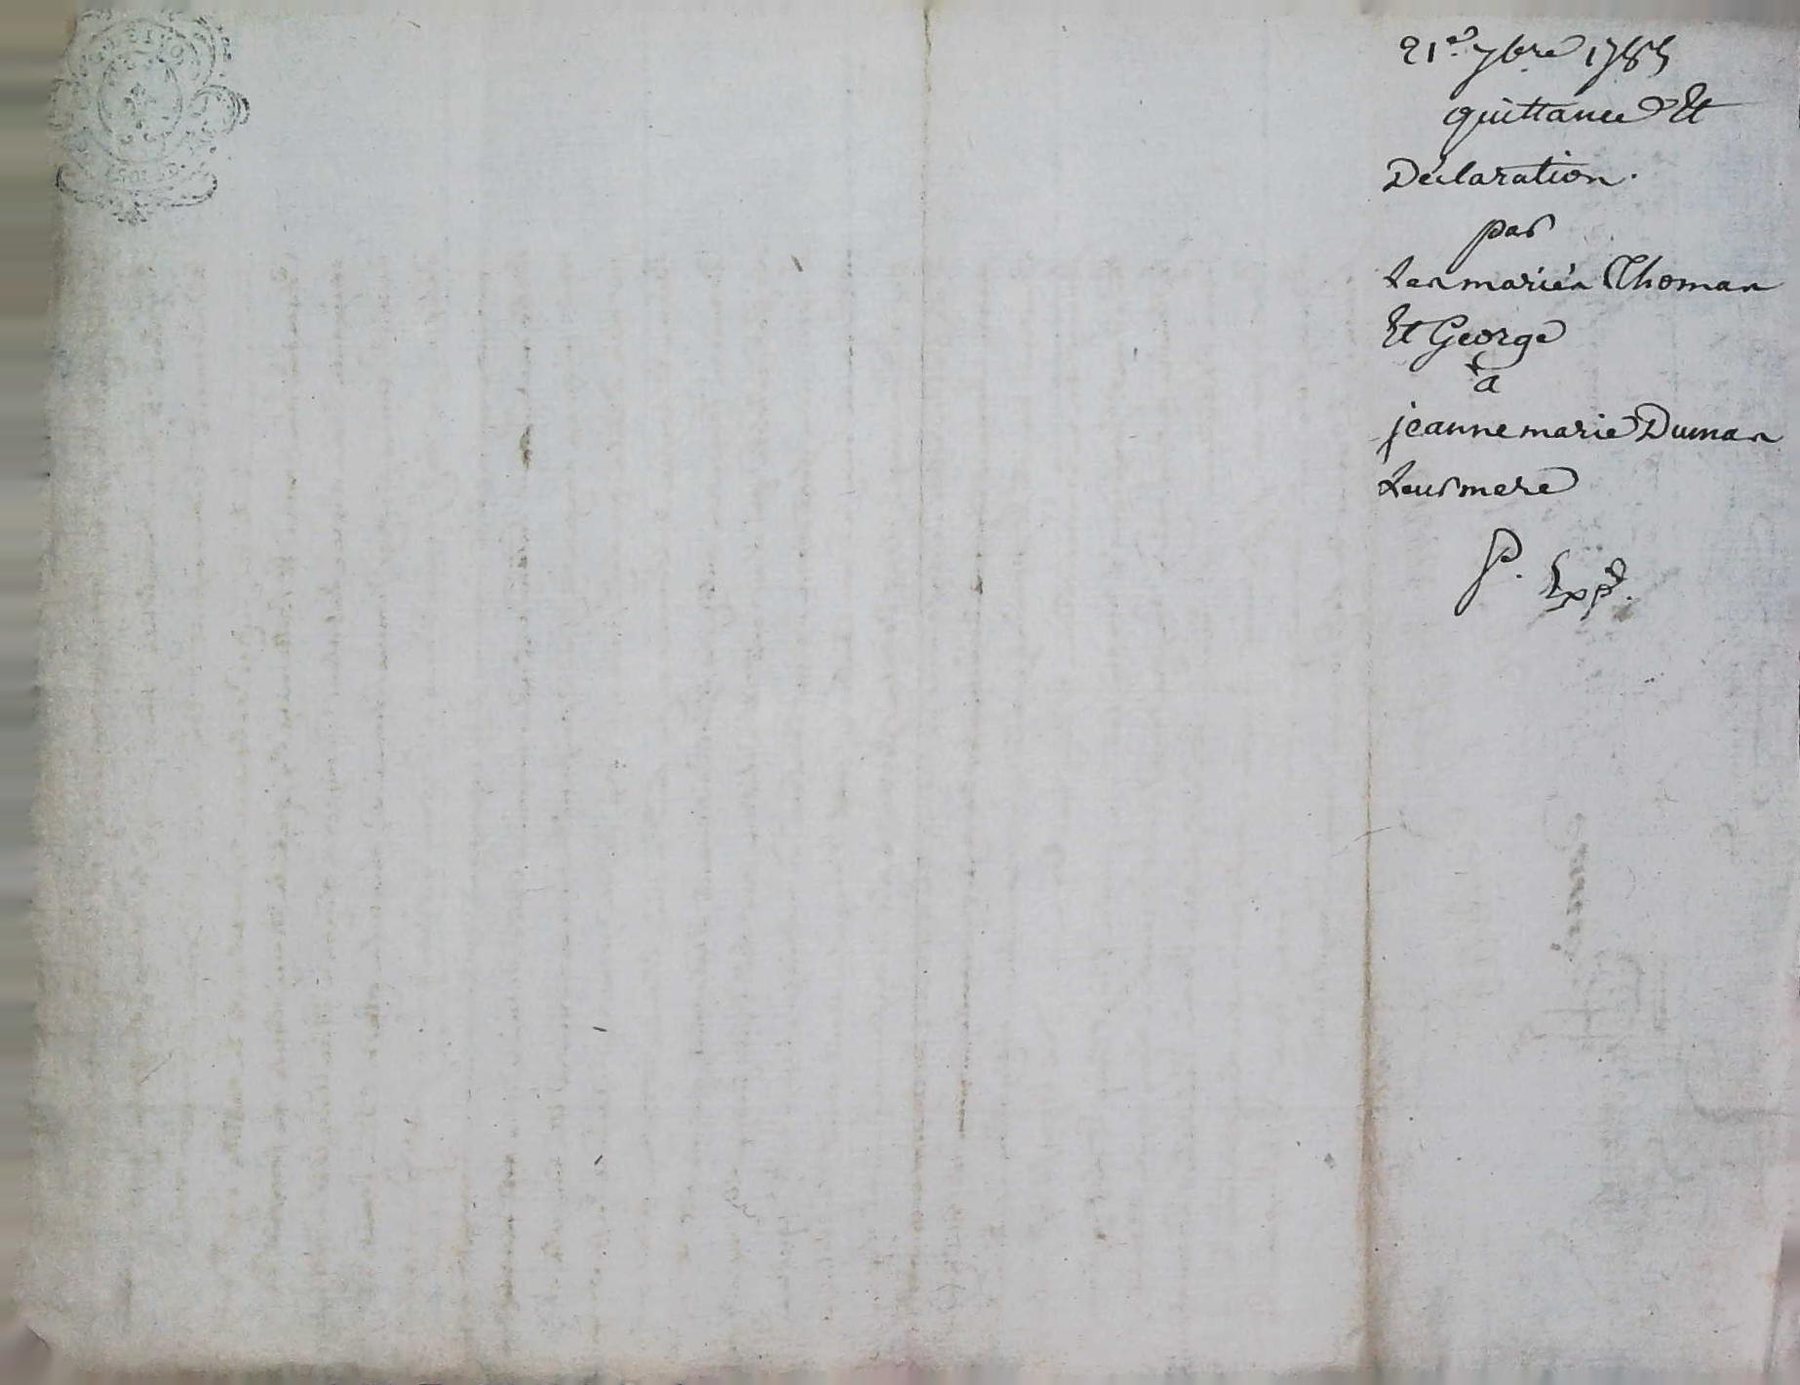 21.e 7bre 1785
quittance Et
Déclaration.
par
Les mariés Thomas
Et George
à
jeanne marie Dumas
Leur mere
P. Expd.